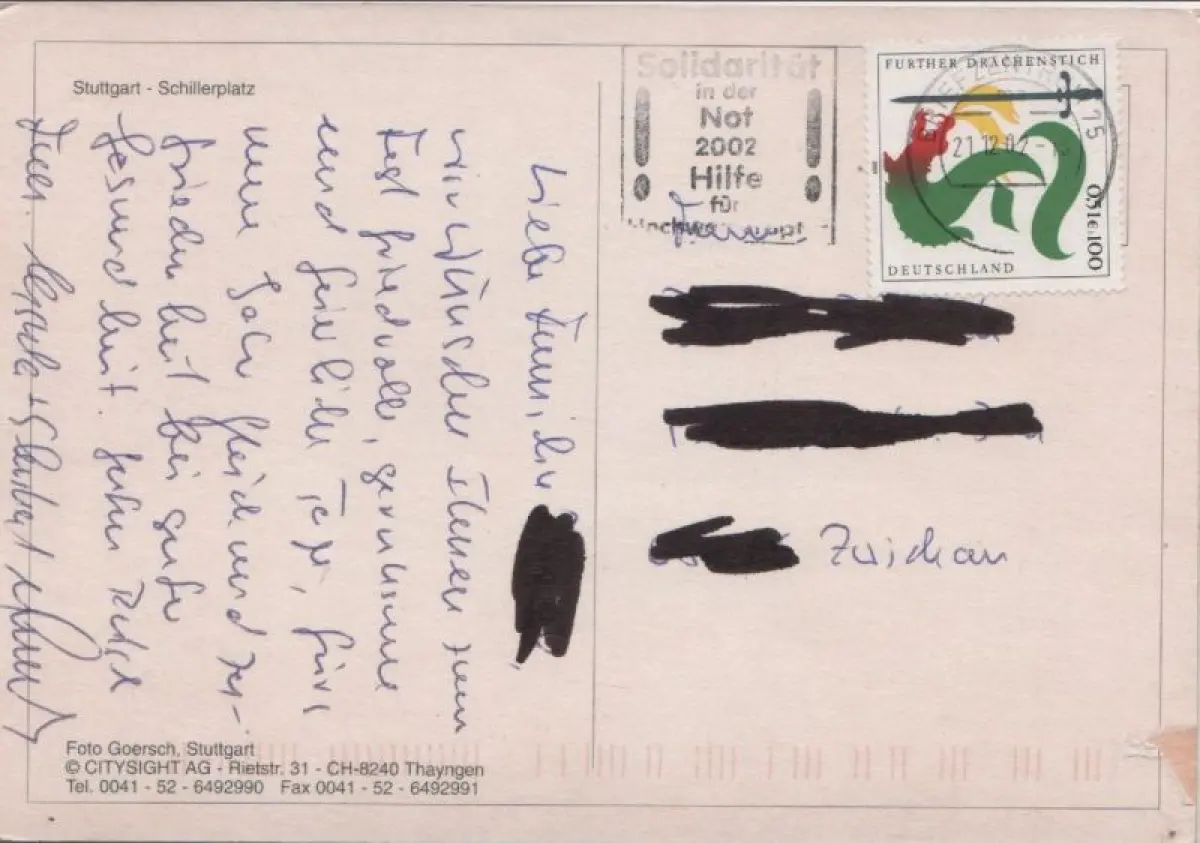 Stuttgart - Schillerplatz
Solidarität
in der
Not
2002
Hilfe
für
FURTHER DRACHENSTICH
BRIEFZENTRUM 75
21.12.02
0,51€ 100
DEUTSCHLAND
Liebe Familie
wir wünschen Ihnen zum
Fest friedvolle, geruhsame
und feierliche Tage, fürs
neue Jahr Glück und Zu-
friedenheit bei guter
Gesundheit. Guten Rutsch
Familie
Zwickau
Foto Goersch, Stuttgart
© CITYSIGHT AG - Rietstr. 31 - CH-8240 Thayngen
Tel. 0041 - 52 - 6492990 Fax 0041 - 52 - 6492991